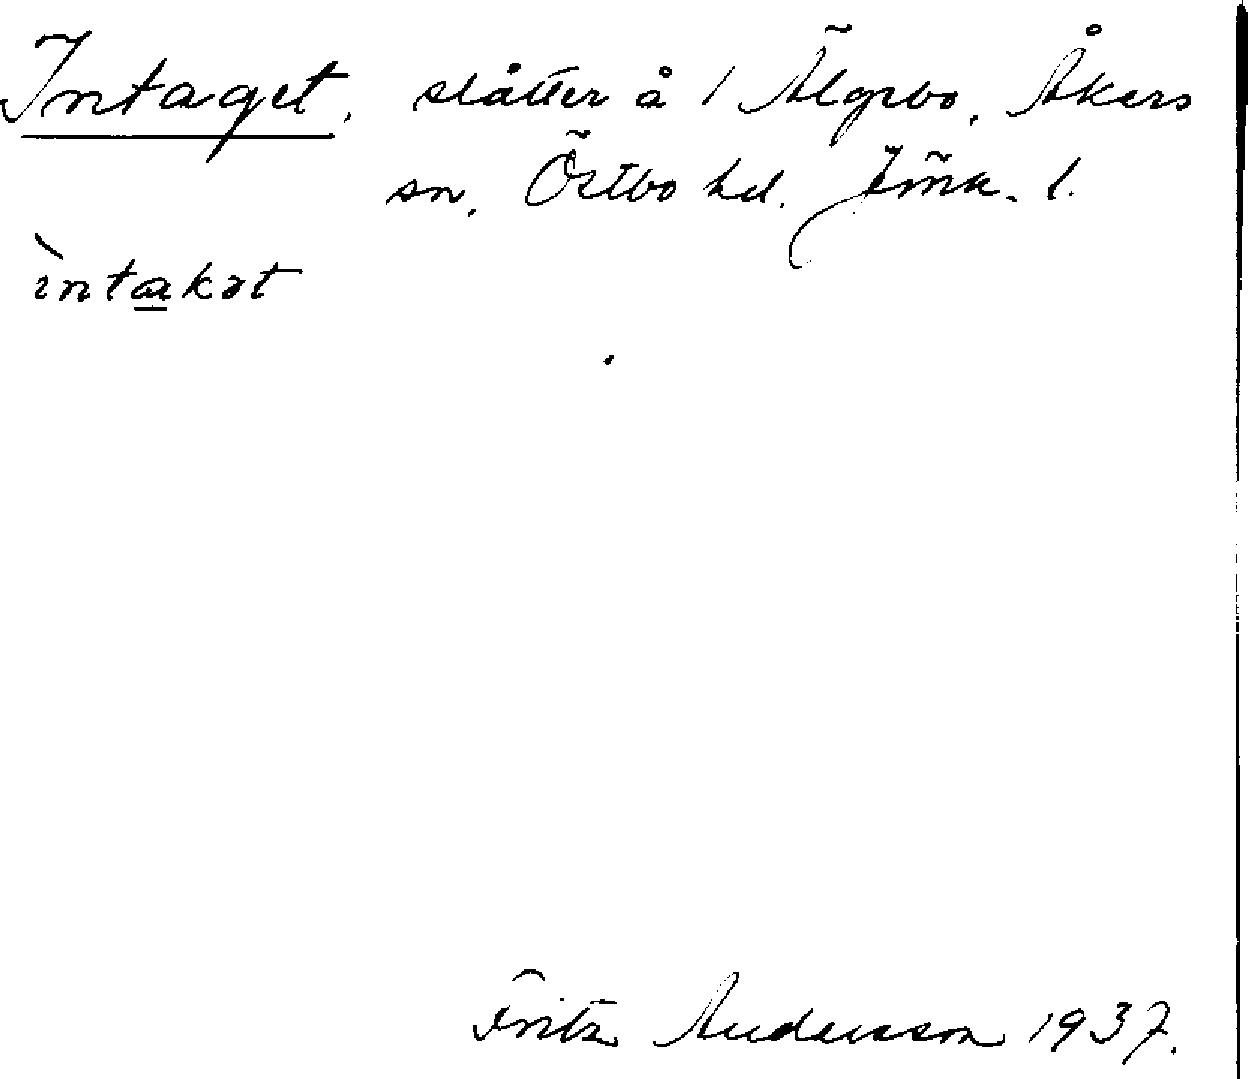 Intaget, slåtter å 1 Älgebo, Åkers
sn, Östbo hd. Jönk. l.
ìntakət
Fritz Andersson 1937.